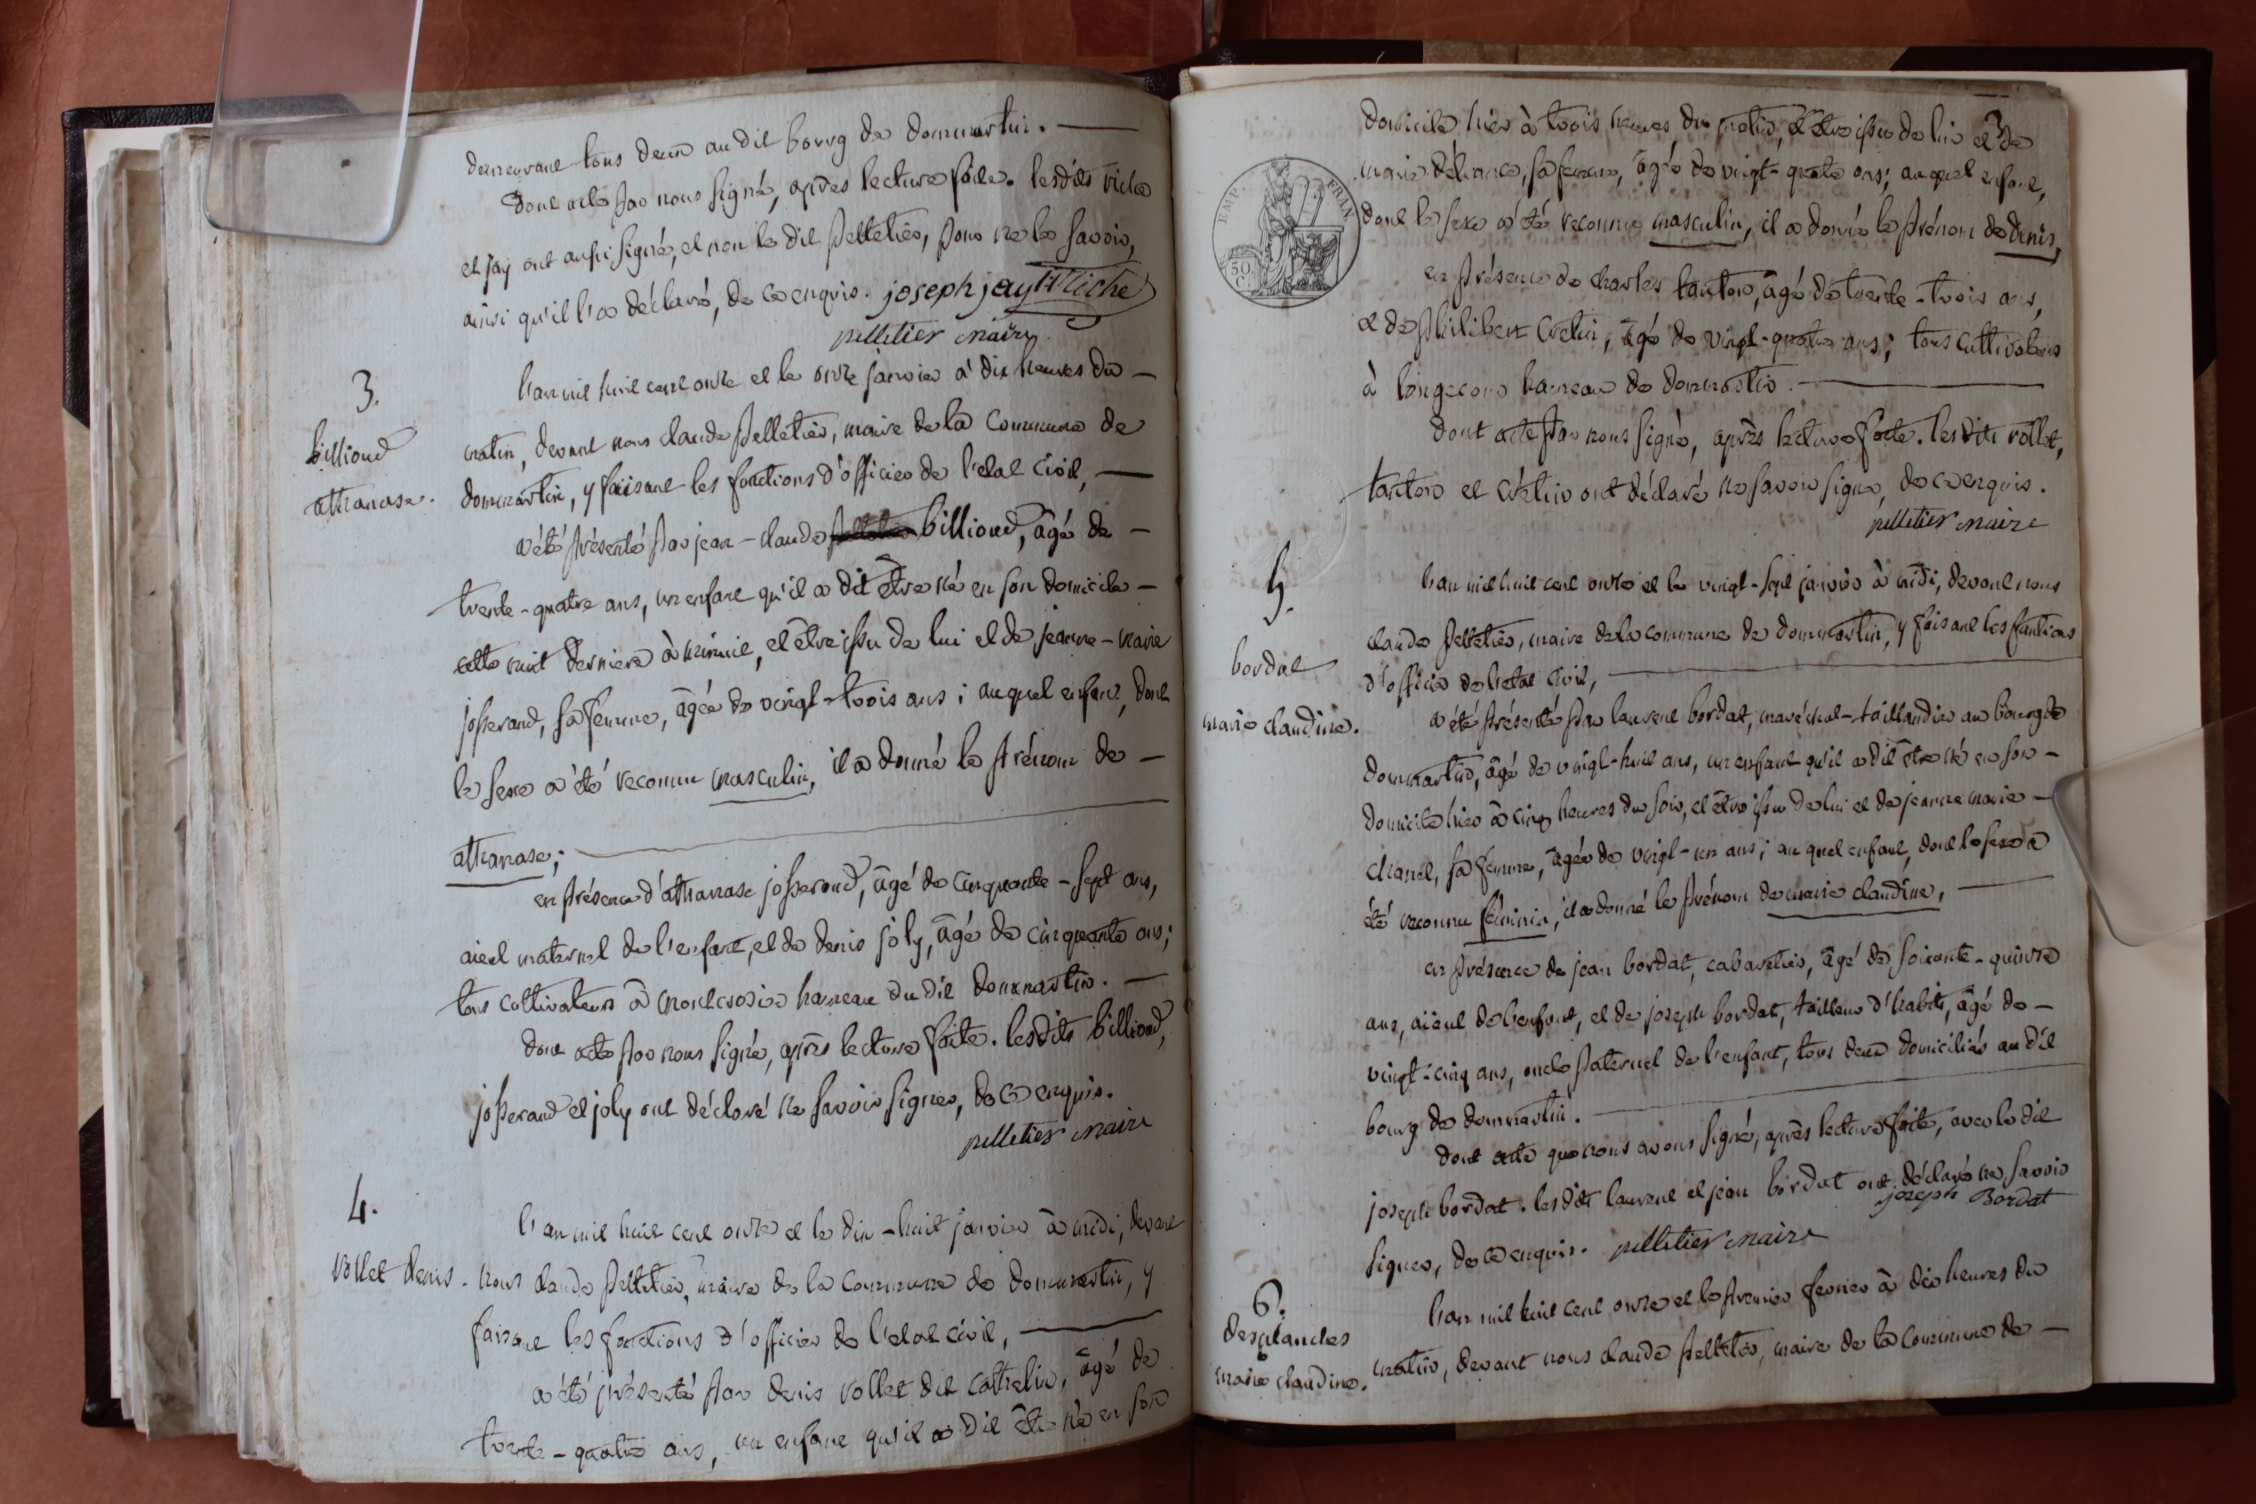 demeurant tous deux au dit bourg de dommartin.
dont acte par nous signé, après lecture faite. lesdits riche
et jay ont aussi signé, et non le dit pelletier, pour ne le savoir,
ainsi qu'il l'a déclaré, de ce enquis. joseph jay Riche
pelletier maire
3.
billioud
athanase.
l'an mil huit cent onze et le onze janvier à dix heures du
matin, devant nous claude pelletier, maire de la commune de
dommartin, y faisant les fonctions d'officier de l'etat civil,
a été présenté par jean-claude billioud, âgé de
trente-quatre ans, un enfant qu'il a dit être né en son domicile
cette nuit derniere à minuit, et être issu de lui et de jeanne-marie
josserand, sa femme, âgée de vingt-trois ans; auquel enfant, dont
le sexe a été reconnu masculin, il a donné le prénom de
athanase;
en présence d'athanase josserand, âgé de cinquante-sept ans,
aieul maternel de l'enfant, et de denis joly, âgé de cinquante ans;
tous cultivateurs à hameau du dit dommartin.
dont acte par nous signé, après lecture faite. lesdits billioud,
josserand et joly ont déclaré ne savoir signer, de ce enquis.
pelletier maire
4.
vollet denis.
l'an mil huit cent onze et le dix-huit janvier à midi, devant
nous claude pelletier, maire de la commune de dommartin, y
faisant les fonctions d'officier de l'etat civil,
a été présenté par denis vollet dit cathelin, âgé de
trente-quatre ans, un enfant qu'il a dit être né en son
domicile hier à trois heures du matin, et être issu de lui et de
marie sa femme, âgée de vingt-quatre ans; auquel enfant,
dont le sexe a été reconnu masculin, il a donné le prénom de denis,
EMP. FRAN.
50 C.
en présence de charles tanton, âgé de trente-trois ans,
et de philibert cretin, âgé de vingt-quatre ans; tous cultivateurs
à longecour hameau de dommartin.
dont acte par nous signé, après lecture faite. les dits vollet,
tanton et crétin ont déclaré ne savoir signer, de ce enquis.
pelletier maire
5.
bordat
marie claudine.
l'an mil huit cent onze et le vingt-sept janvier à midi, devant nous
claude pelletier, maire de la commune de dommartin, y faisant les fonctions
d'officier de l'etat civil,
a été présenté par laurent bordat, maréchal-taillandier au bourg de
dommartin, âgé de vingt-huit ans, un enfant qu'il a dit être né en son
domicile hier à cinq heures du soir, et être issu de lui et de jeanne marie
chanel, sa femme, âgée de vingt-un ans; auquel enfant, dont le sexe a
été reconnu féminin, il a donné le prénom de marie claudine,
en présence de jean bordat, cabaretier, âgé de soixante-quinze
ans, aieul de l'enfant, et de joseph bordat, tailleur d'habits, âgé de
vingt-cinq ans, oncle paternel de l'enfant, tous deux domiciliés au dit
bourg de dommartin.
dont acte que nous avons signé, après lecture faite, avec le dit
joseph bordat. les dits laurent et jean bordat ont déclaré ne savoir
joseph Bordat
signer, de ce enquis. pelletier maire
6.
desplanches
marie claudine.
l'an mil huit cent onze et le premier fevrier à dix heures du
matin, devant nous claude pelletier, maire de la commune de